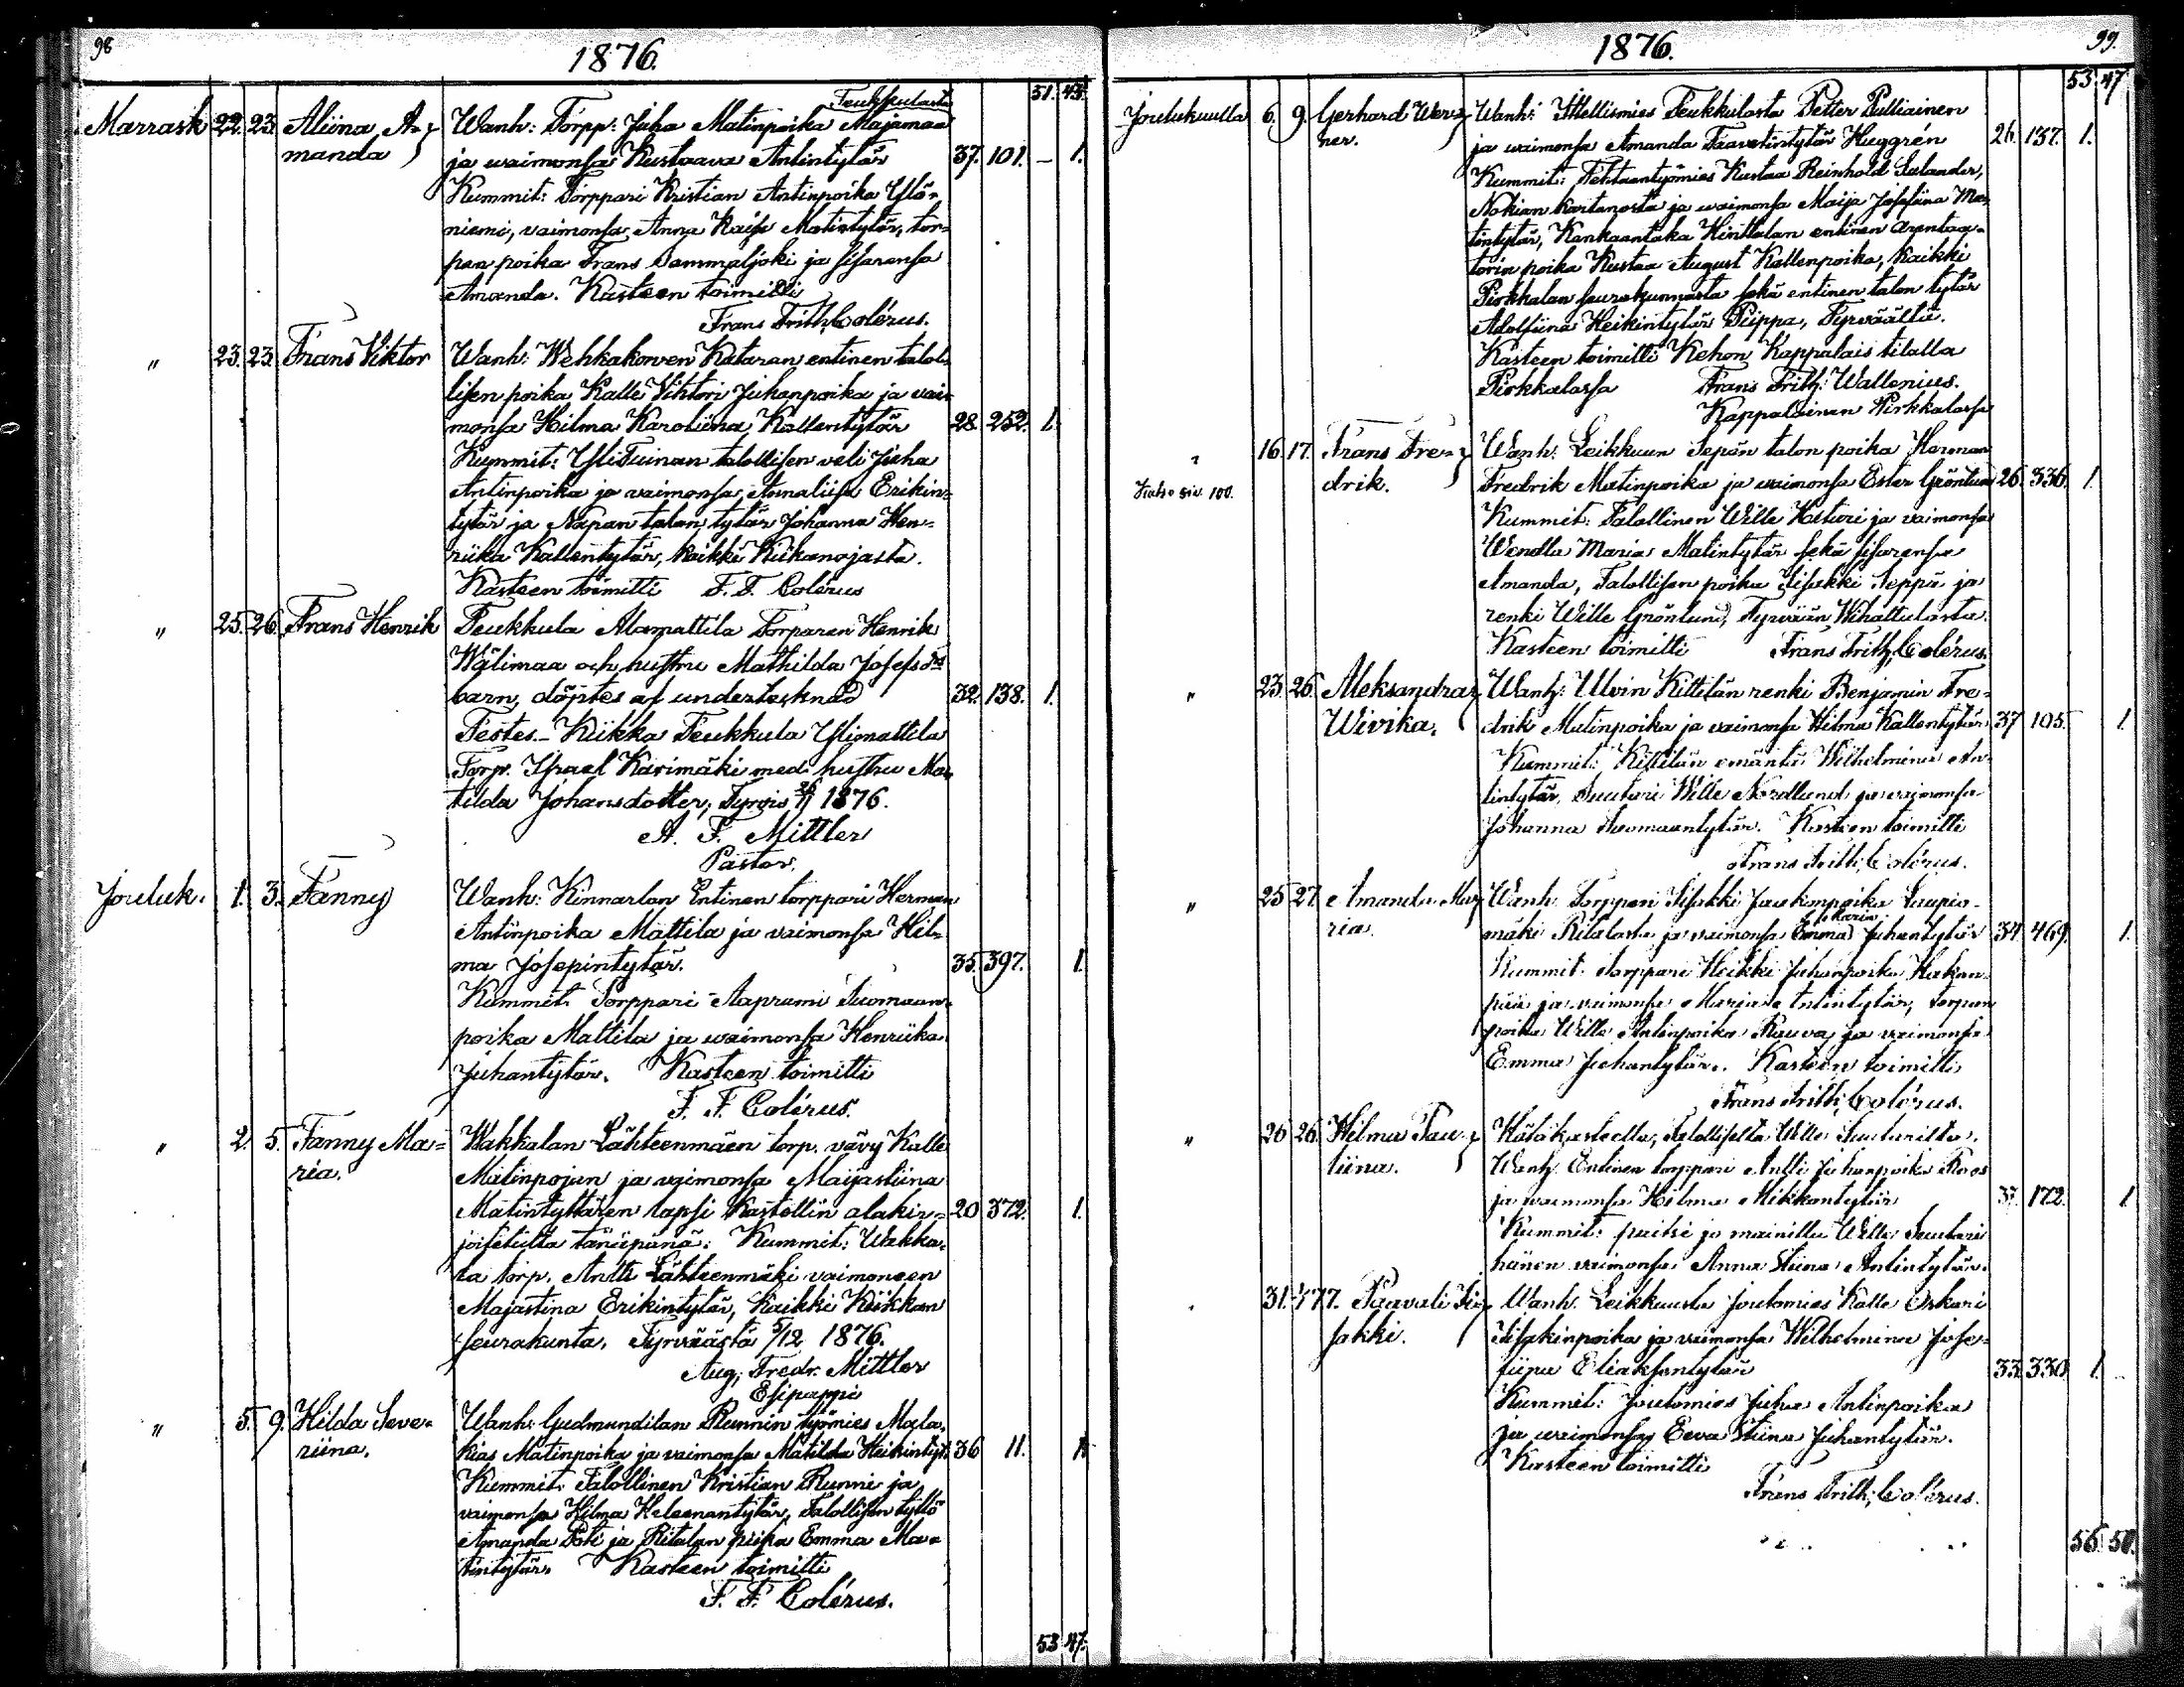 98
1876.
51. 43.
Marrask. 22. 23. Aliina A-
manda
Teukkulasta
Wanh: Torpp: Juha Matinpoika Majamaa
ja waimonsa Kustaava Antintytär 37. 101. – 1.
Kummit: Torppari Kristian Antinpoika Ylö-
niemi, vaimonsa Anna Kaisa Matintytär, tor-
pan poika Frans Sammaljoki ja sisarensa
Amanda. Kasteen toimitti
Frans Frith. Colérus.
" 23. 23. Frans Viktor
Wanh: Wehkakorven Kataran entinen talol-
lisen poika Kalle Viktori Juhanpoika ja vai-
monsa Hilma Karoliina Kallentytär 28. 252. 1.
Kummit: YliTuinan talollisen veli Juha
Antinpoika ja vaimonsa Annaliisa Erikin-
tytär ja Napan talon tytär Johanna Hen-
riika Kallentytär, kaikki Kiikanojasta.
Kasteen toimitti F. F. Colérus
" 25. 26. Frans Henrik
Teukkula Alamattila Torparen Henrik
Wälimaa och hustru Mathilda Josefs Dr
barn, döptes af undertecknad 32. 138. 1.
Testes. – Kiikka Teukkula Ylimattila
Torp. Israel Karimäki med hustru Ma-
tilda Johansdotter; Tyrvis 26/11 1876.
A. F. Mittler
Pastor.
Jouluk. 1. 3. Fanny
Wanh: Kinnarlan Entinen torppari Herman
Antinpoika Mattila ja vaimonsa Hil-
ma Josepintytär. 35. 397. 1.
Kummit: Torppari Aaprami Tuomaan-
poika Mattila ja waimonsa Henriika
Juhantytär. Kasteen toimitti
F. F. Colérus.
" 2. 5. Fanny Ma-
ria.
Wakkalan Lähteenmäen torp. vävy Kalle
Matinpojan ja vaimonsa Maijastiina
Matintyttären lapsi Kastettiin alakir- 20 372. 1.
joitetulta tänäpänä: Kummit: Wakka-
la torp. Antti Lähteenmäki vaimoneen
Majastina Erikintytär, kaikki Kiikkan
seurakunta. Tyrväästä 5/12 1876.
Aug. Fredr. Mittler
Esipappi
" 5. 9. Hilda Seve-
riina.
Wanh: Gudmundilan Runnin työmies Mala-
kias Matinpoika ja vaimonsa Matilda Heikintyt: 36 11. 1.
Kummit: Talollinen Kristian Runni ja
vaimonsa Hilma Heleenantytär, Talollisen tyttö
Amanda Poti ja Ritalan piika Emma Ma-
tintytär. Kasteen toimitti
F. F. Colérus.
53 47.
99.
1876.
53 47
Joulukuulla 6. 9. Gerhard Wer-
ner.
Wanh: Itsellismies Teukkulasta Petter Pulliainen
ja waimonsa Amanda Taavetintytär Huggrén 26. 137. 1.
Kummit: Tehtaantyömies Kustaa Reinhold Salander,
Nokian kartanosta ja waimonsa Maija Josefiina Ma-
tintytär, Kankaantaka Hinttalan entinen arentaa-
torin poika Kustaa August Kallenpoika, kaikki
Pirkkalan seurakunnasta sekä entinen talon tytär
Adolfiina Heikintytär Piippa, Tyrväältä.
Kasteen toimitti Kehon Kappalais tilalla
Pirkkalassa Frans Frith: Wallenius.
Kappalainen Pirkkalassa
" 16. 17. Frans Fre-
drik.
Katso siv. 100.
Wanh: Leikkuun Sepän talon poika Herman
Fredrik Matinpoika ja vaimonsa Ester Grönlund 26. 336. 1
Kummit: Talollinen Wille Haturi ja vaimonsa
Wendla Maria Matintytär sekä sisarensa
Amanda, Talollisen poika Iisakki Seppä ja
renki Wille Grönlund, Tyrvään Wihattulasta.
Kasteen toimitti Frans Frith. Colérus.
" 23. 26. Aleksandra
Wivika.
Wanh: Ulvin Kittilän renki Benjamin Fre-
drik Matinpoika ja vaimonsa Hilma Kallentytär 37 105. 1.
Kummit: Kittilän emäntä Wilhelmina An-
tintytär, Suutari Wille Nordlund ja vaimonsa
Johanna Tuomaantytär. Kasteen toimitti
Frans Frith. Colérus.
" 25 27. Amanda Ma-
ria.
Wanh: Torppari Iisakki Jaakonpoika Saupia-
Maria
mäki Ritalasta ja vaimonsa Emma Juhantytär 34. 469. 1.
Kummit: Torppari Heikki Juhanpoika Hakan-
pää ja vaimonsa Maria Antintytär, torpan
poika Wille Antinpoika Rauva, ja vaimonsa
Emma Juhantytär. Kasteen toimitti
Frans Frith. Colérus.
" 26 26. Hilma Pau-
liina.
Hätäkasteella, Talolliselta Wille Suutarilta.
Wanh: Entinen torppari Antti Juhanpoika Roos
ja vaimonsa Hilma Mikkontytär 33. 172. 1
Kummit: paitsi jo mainittu Wille Suutari
hänen vaimonsa Anna Stiina Antintytär.
31. 1/77. Paavali Ii-
sakki.
Wanh: Leikkuusta Joutomies Kalle Oskari
Iisakinpoika ja vaimonsa Wilhelmina Jose-
fiina Eliaksentytär 33. 330. 1.
Kummit: Joutomies Juha Antinpoika
ja waimonsa Eeva Stiina Juhantytär.
Kasteen toimitti
Frans Frith. Colérus.
56 50.